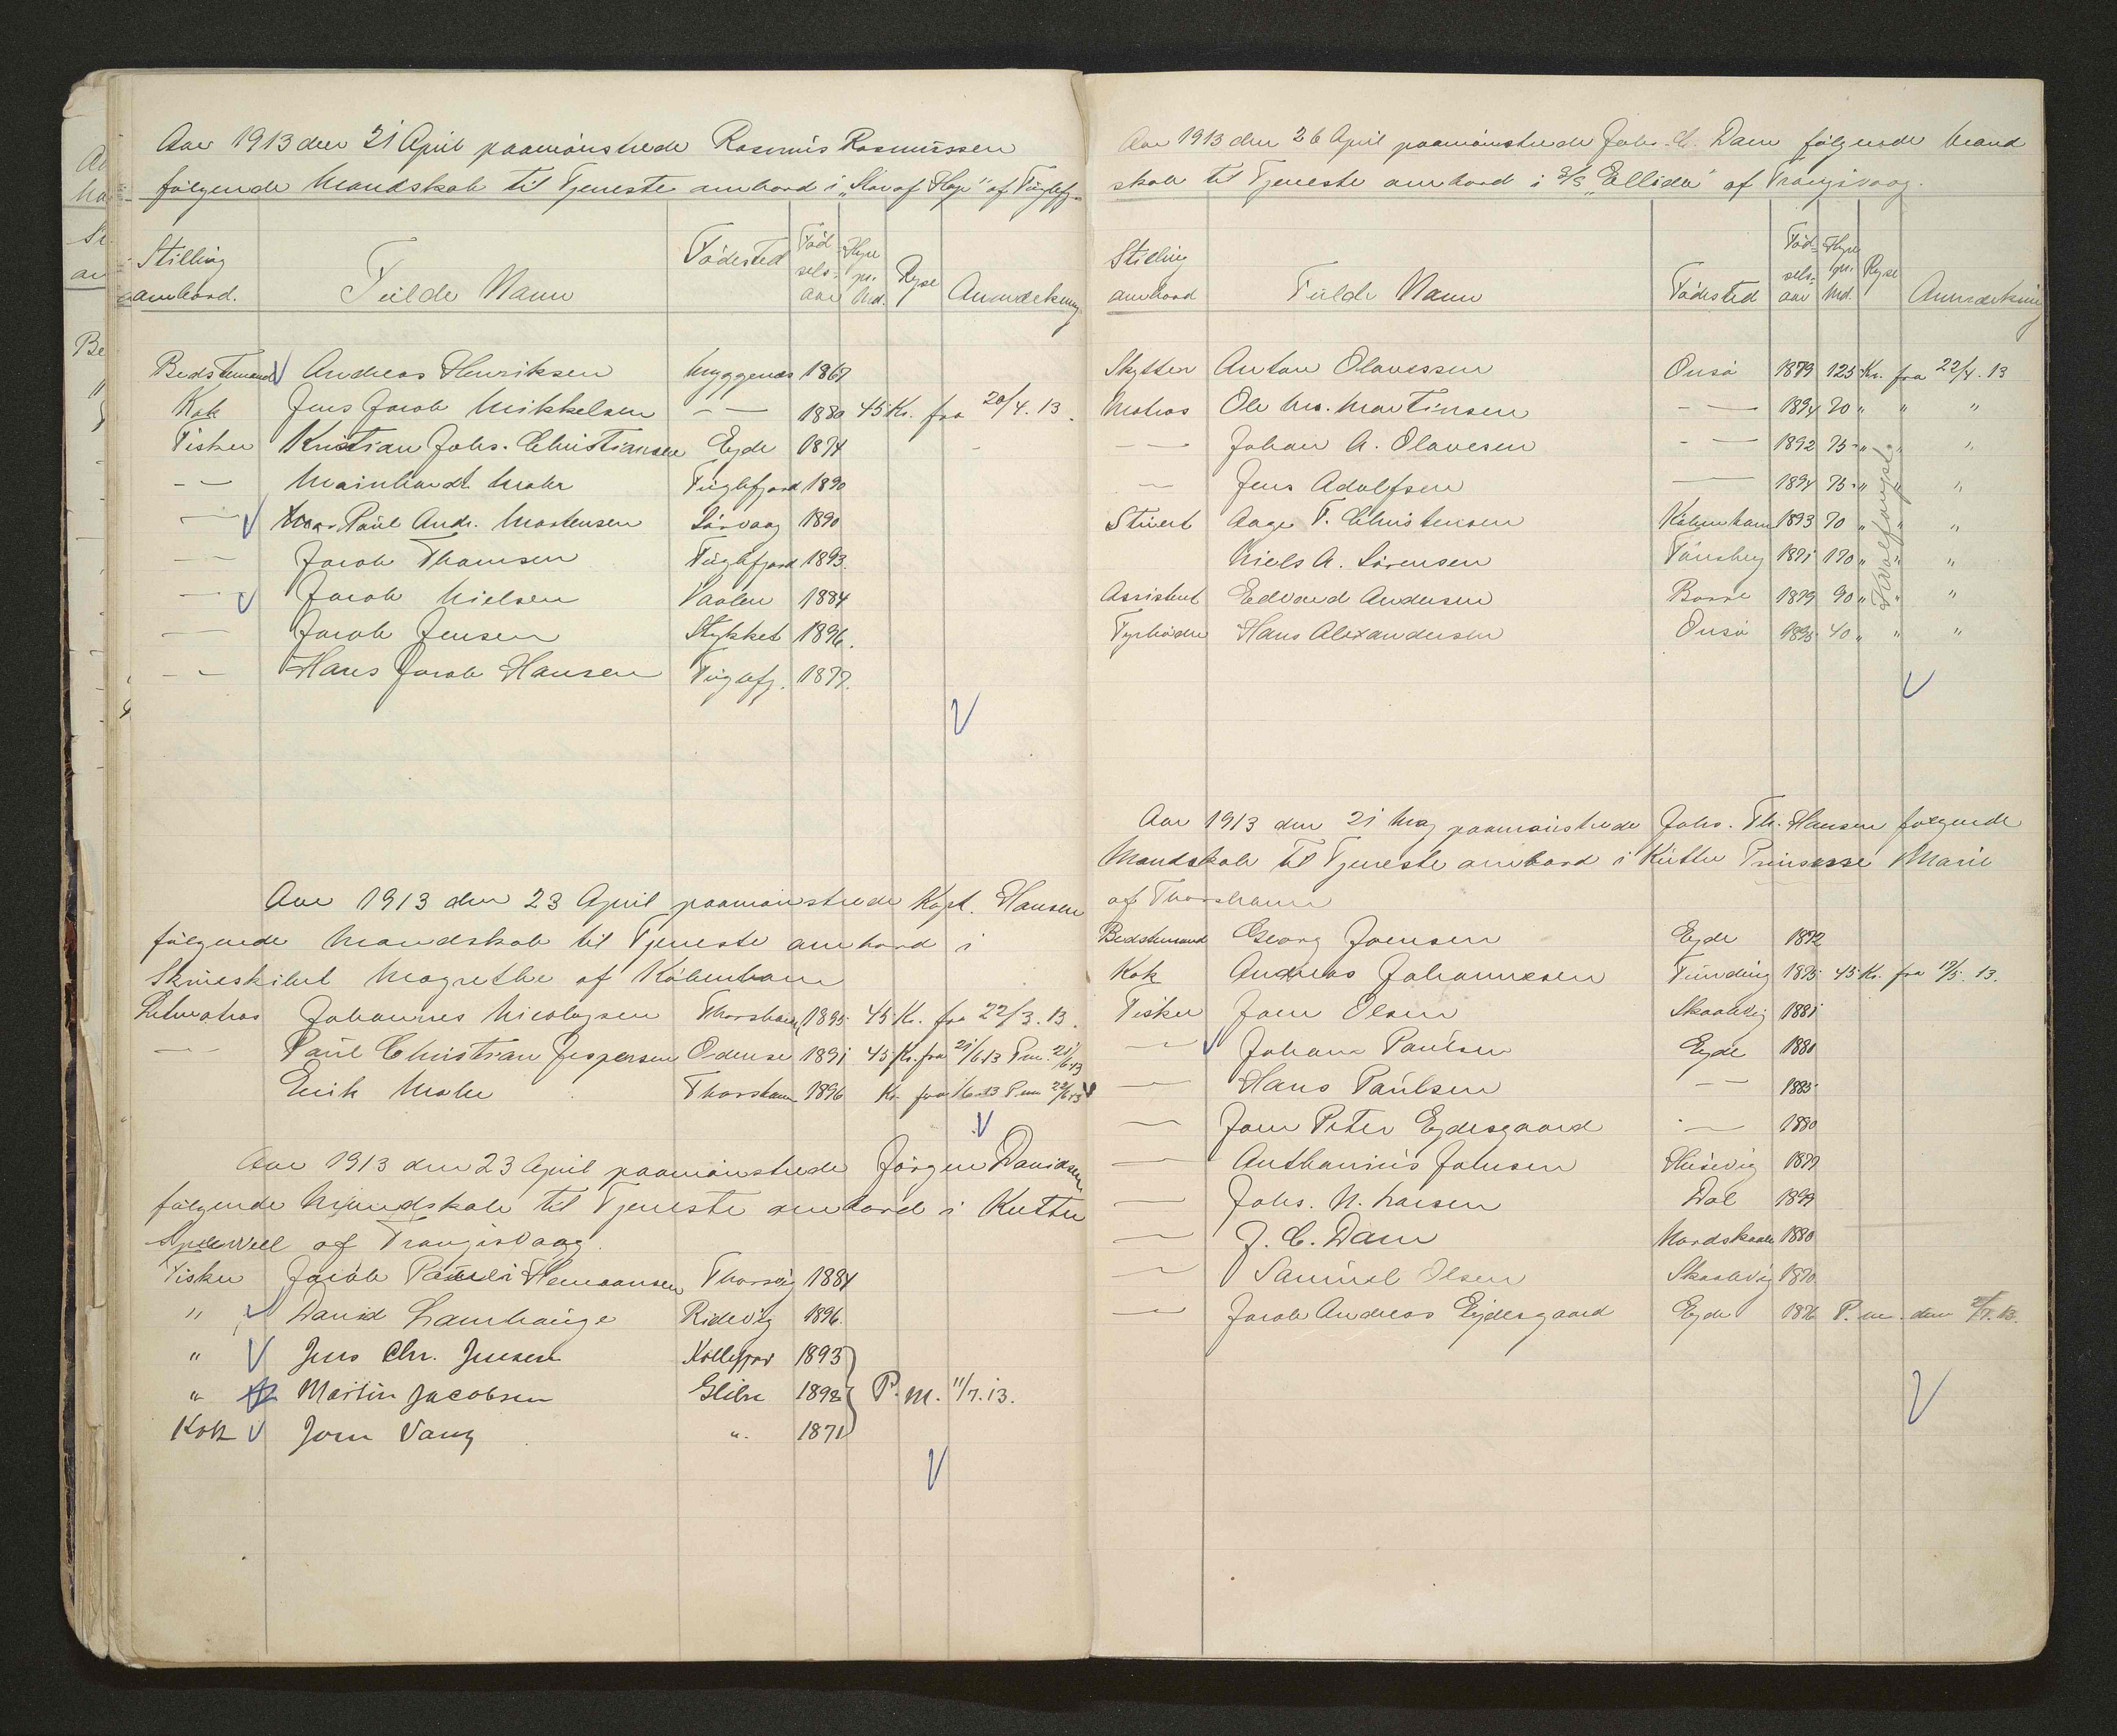 Aar 1913 den 21 April paamönstrede Rasmus Rasmussen
følgende Mandskab til Tjeneste ombord i "Star of Hope" af Fuglefj.
Stilling ombord. Fulde Navn Födested Födselsaar Hyre pr. Md. Rejse Anmærkning
Bedstemand Andreas Henriksen Myggenæs 1867
Kok Jens Jacob Mikkelsen – — 1880 45 Kr. fra 20/4. 13.
Fisker Kristian Johs. Christiansen Ejde 1874
– — Mainhardt Mohr Fuglefjord 1890
– — Paul Andr. Mortensen Sörvaag 1890
– — Jacob Thomsen Fuglefjord 1893.
– — Jacob Nielsen 1884
— Jacob Jensen Stykket 1896.
– — Hans Jacob Hansen Fuglefj. 1877.
Aar 1913 den 23 April paamönstrede Kapt. Hansen
følgende Mandskab til Tjeneste ombord i
Skrueskibet Magrethe af Köbenhavn
Letmatros Johannes Nicolajsen Thorshavn 1895 45 Kr. fra 22/3. 13.
– — Paul Christian Jespersen Odense 1891 45 Kr. fra 21/6 13 P.m. 21/6 13
Erik Mohr Thorshavn 1896 Kr. fra 1/6 13 P.m 22/6 13
Aar 1913 den 23 April paamönstrede Jörgen Davidsen
følgende Mandskab til Tjeneste ombord i Kutter
Speedwell af Trangisvaag.
Fisker Jacob Pauli Hermansen Thorsvig 1884
" David Lamhauge Ridevig 1896.
" Jens Chr. Jensen Kollefjord 1893
" Martin Jacobsen Glibre 1892 P. m. 11/7. 13.
Kok Joen Vang ". 1871
Aar 1913 den 26 April paamönstrede Johs. C. Dam følgende Mand
skab til Tjeneste ombord i S/S "Ellida" af Trangisvaag.
Stilling ombord Fulde Navn Födested Födselsaar Hyre pr. Md. Rejse Anmærkning
Skytter Anton Olavessen Onsö 1879 125 Kr. fra 22/4. 13
Matros Ole Ms. Martinsen – — 1894 70 " " "
– — Johan A. Olavesen – — 1892 75 " " "
— Jens Adolfsen — 1894 75 " " "
Stuert Aage F. Christensen Köbenhavn 1893 70 " " "
Niels A. Sörensen Tönsberg 1871 170 " " "
Assistent Edvard Andersen Borre 1879 90 " " "
Fyrböder Hans Alexandersen Onsö 1895 40 " " "
Hvalfangst
Aar 1913 den 21 Maj paamönstrede Johs. Th. Hansen følgende
Mandskab til Tjeneste ombord i Kutter Prinsesse Marie
af Thorshavn
Bedstemand Georg Joensen Ejde 1872
Kok Andreas Johannesen Funding 1895 45 Kr. fra 19/5. 13.
Fisker Joen Olsen Skaalevig 1881
— Johan Paulsen Ejde 1881
— Hans Paulsen – — 1885
— Joen Peter Ejdesgaard – — 1880
— Anthonius Johnsen Husevig 1877
— Johs. N. Larsen Dal 1899
— J. C. Dam Nordskaale 1880
— Samuel Olsen Skaalevig 1870
— Jacob Andreas Ejdesgaard Ejde 1876 P. m. den 5/7. 13.